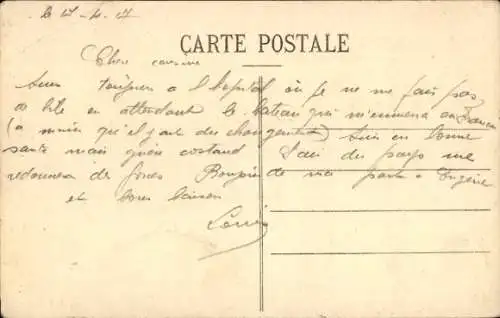 CARTE POSTALE
Chere cousine
Suis toujours a l hopital où je ne me fais pas
de bile en attendant le bateau qui m'emmena en France
(a moins qu'il y ait des changements) Suis en bonne
santé mais guère costaud L'air du pays me
redonnera de forces Bonjour de ma part a Eugène
et bons baisers
Louis